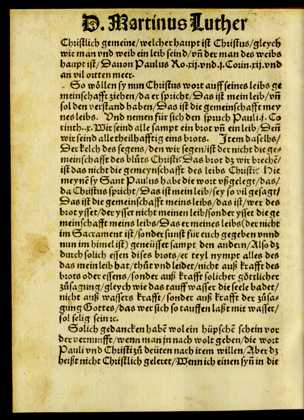 D. Martinus Luther
Christlich gemeine/welcher haupt ist Christus/gleych
wie man vnd weib ein leib seind/vn̄ der man des weibs
haupt ist/Dauon Paulus Ro.xij.vnd.j.Corin.xij.vnd
an vil ortten meer.
So wöllen sy nun Christus wort auff seines leibs ge
meinschafft ziehen/da er spricht/Das ist mein leib/vn̄
sol den verstand haben/Das ist die gemeinschafft mey
nes leibs. Vnd nemen für sich den spruch Pauli.j.Co
rinth.x.Wir seind alle sampt ein brot vn̄ ein leib/Den̄
wir seind alle theilhafftig eins brots. Jtem daselbs/
Der kelch des segens/den wir segen/ist der nicht die ge-
meinschafft des blůts Christi: Das brot dz wir brechē/
ist das nicht die gemeynschafft des leibs Christi: Hie
meynē sy Sant Paulus habe die wort vßgelegt/das/
da Christus spricht/Das ist mein leib/sey so vil gesagt/
Das ist die gemeinschafft meins leibs/das ist/wer des
brot ysset/der ysset nicht meinen leib/sonder ysset die ge
meinschafft meins leibs/Das er meines leibs(der nicht
im Sacrament ist/sonder sunst für euch gegeben vnnd
nun im himel ist) geneüsset sampt den andern/Also dz
durch solich essen dises brots/er teyl nympt alles des
das mein leib hat/thůt vnd leidet/nicht auß krafft des
brots oder essens/sonder auß krafft solicher götlicher
zůsagung/gleych wie das tauff wasser die seele badet/
nicht auß wassers krafft/sonder auß krafft der zůsa-
gung Gottes/das wer sich so tauffen laßt mit wasser/
sol selig sein ꝛc.
Solich gedancken habē wol ein hüpschē schein vor
der vernunfft/wenn man jn nach wolt geben/die wort
Pauli vnd Christi zů deüten nach irem willen/Aber dz
heißt nicht Christlich geleret/Wenn ich einen syn̄ in die